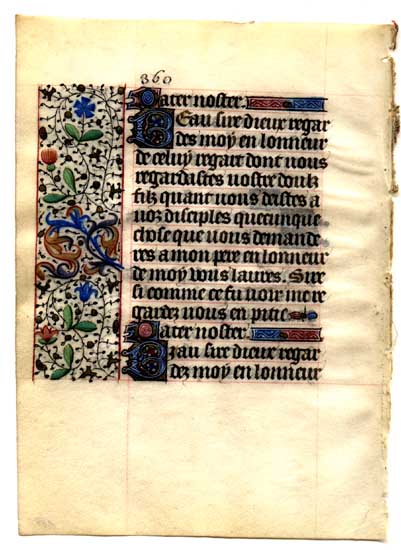 360
Pater noster.
Beau sire dieux regar
des moy en lonneur
de celuy regart dont vous
regardastes vostre doulz
filz quant vous deistes a
voz disciples quecunque
chose que vous demande
res a mon pere en lonneur
de moy vous laures. Sire
si comme ce fu voir mere
gardez nous en pitie
Pater noster.
Biau sire dieux regar
dez moy en lonneur